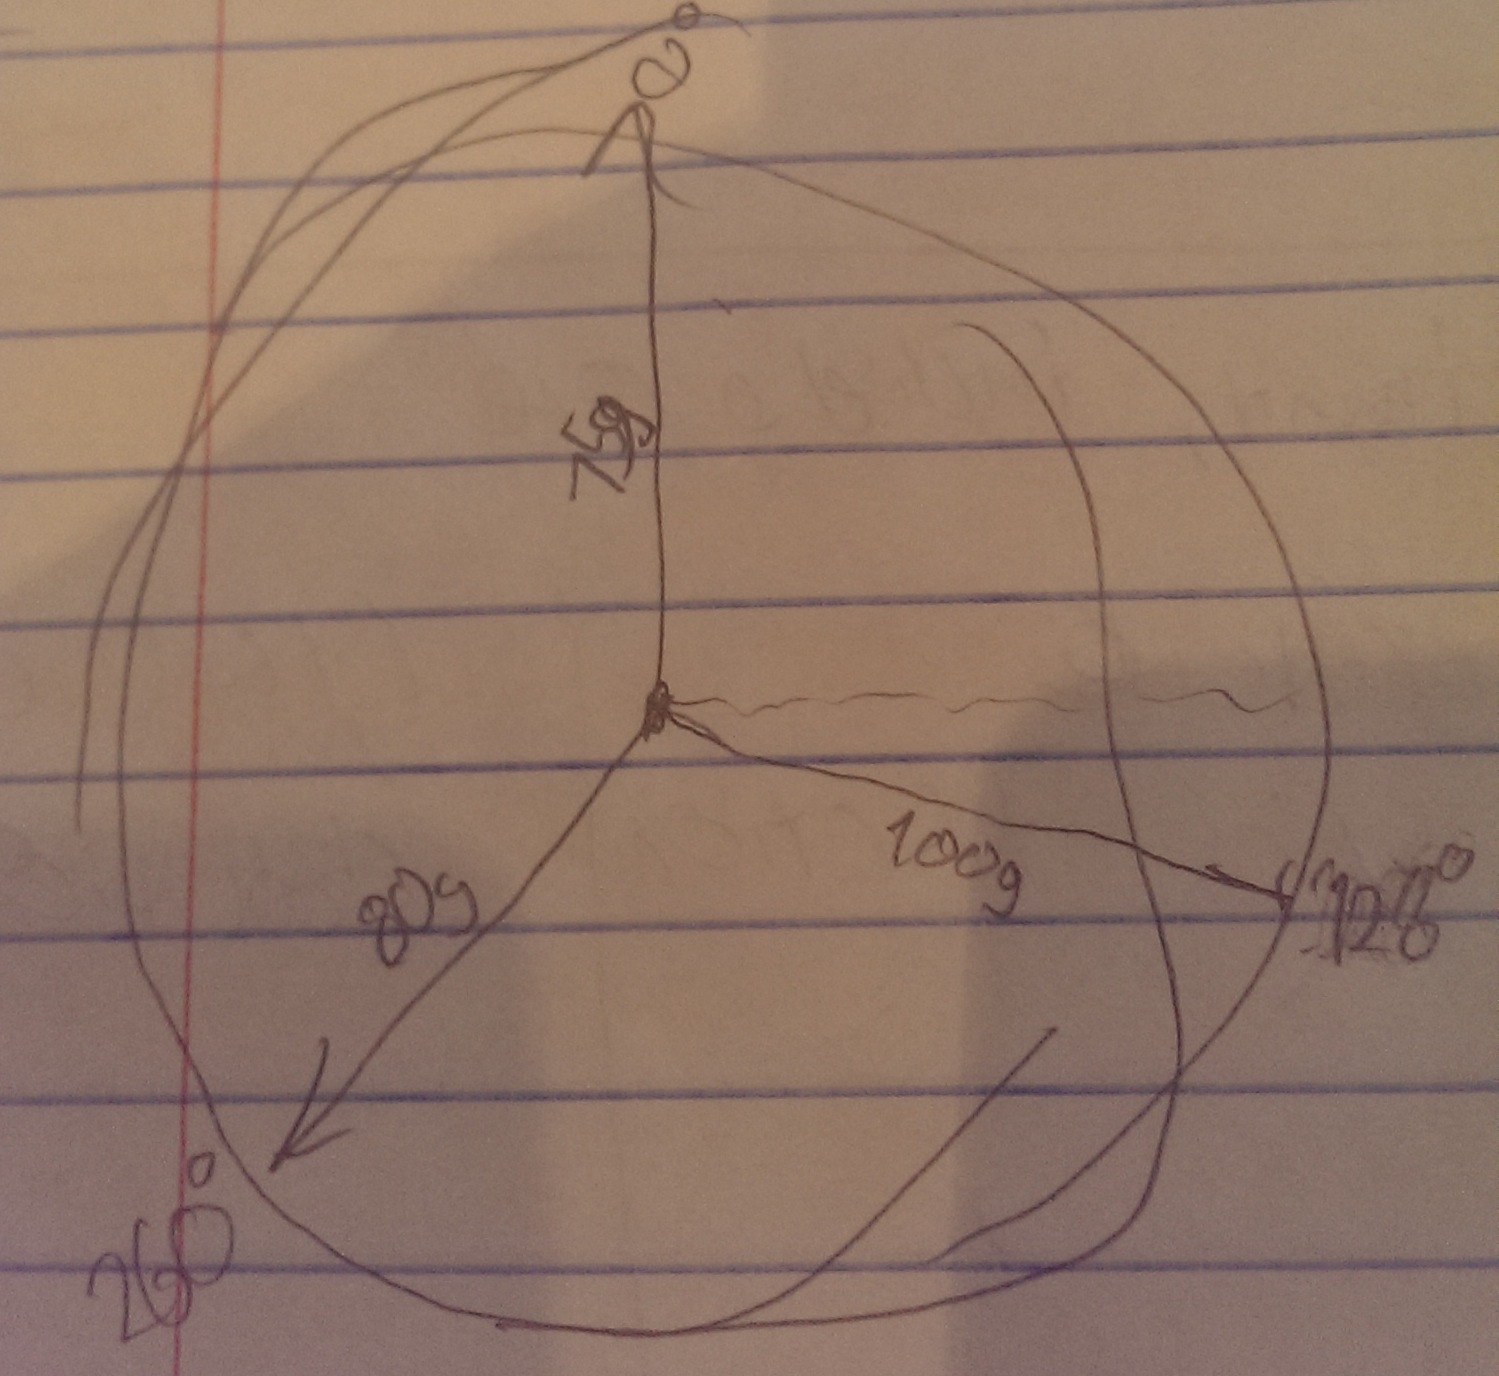 0°
75g
100g
128°
80g
260°